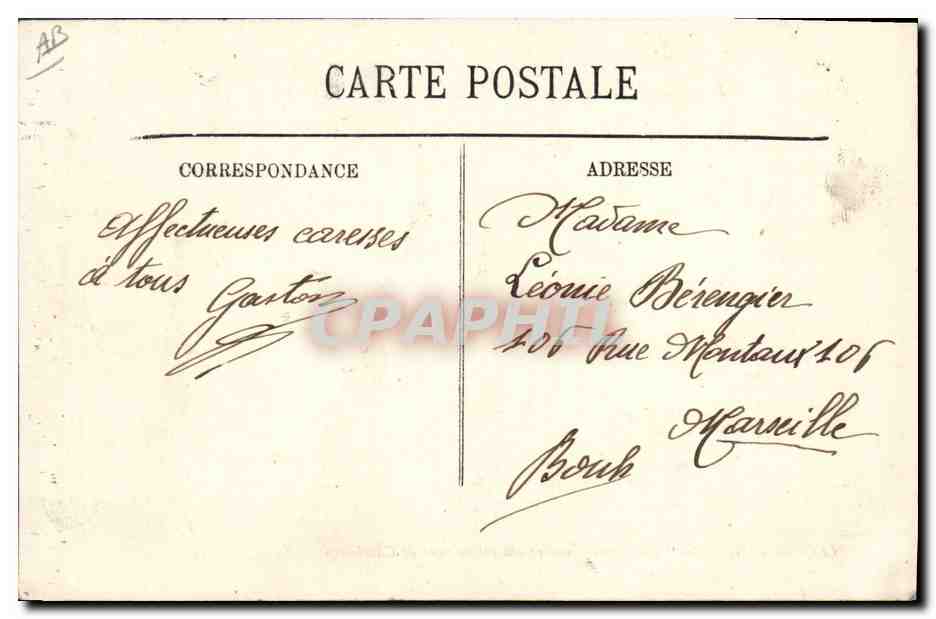 AB
CARTE POSTALE
CORRESPONDANCE
Affectueuses caresses
à tous
Gaston
ADRESSE
Madame
Léonie Bérengier
106 Rue Montaux 106
Marseille
CPAPHIL